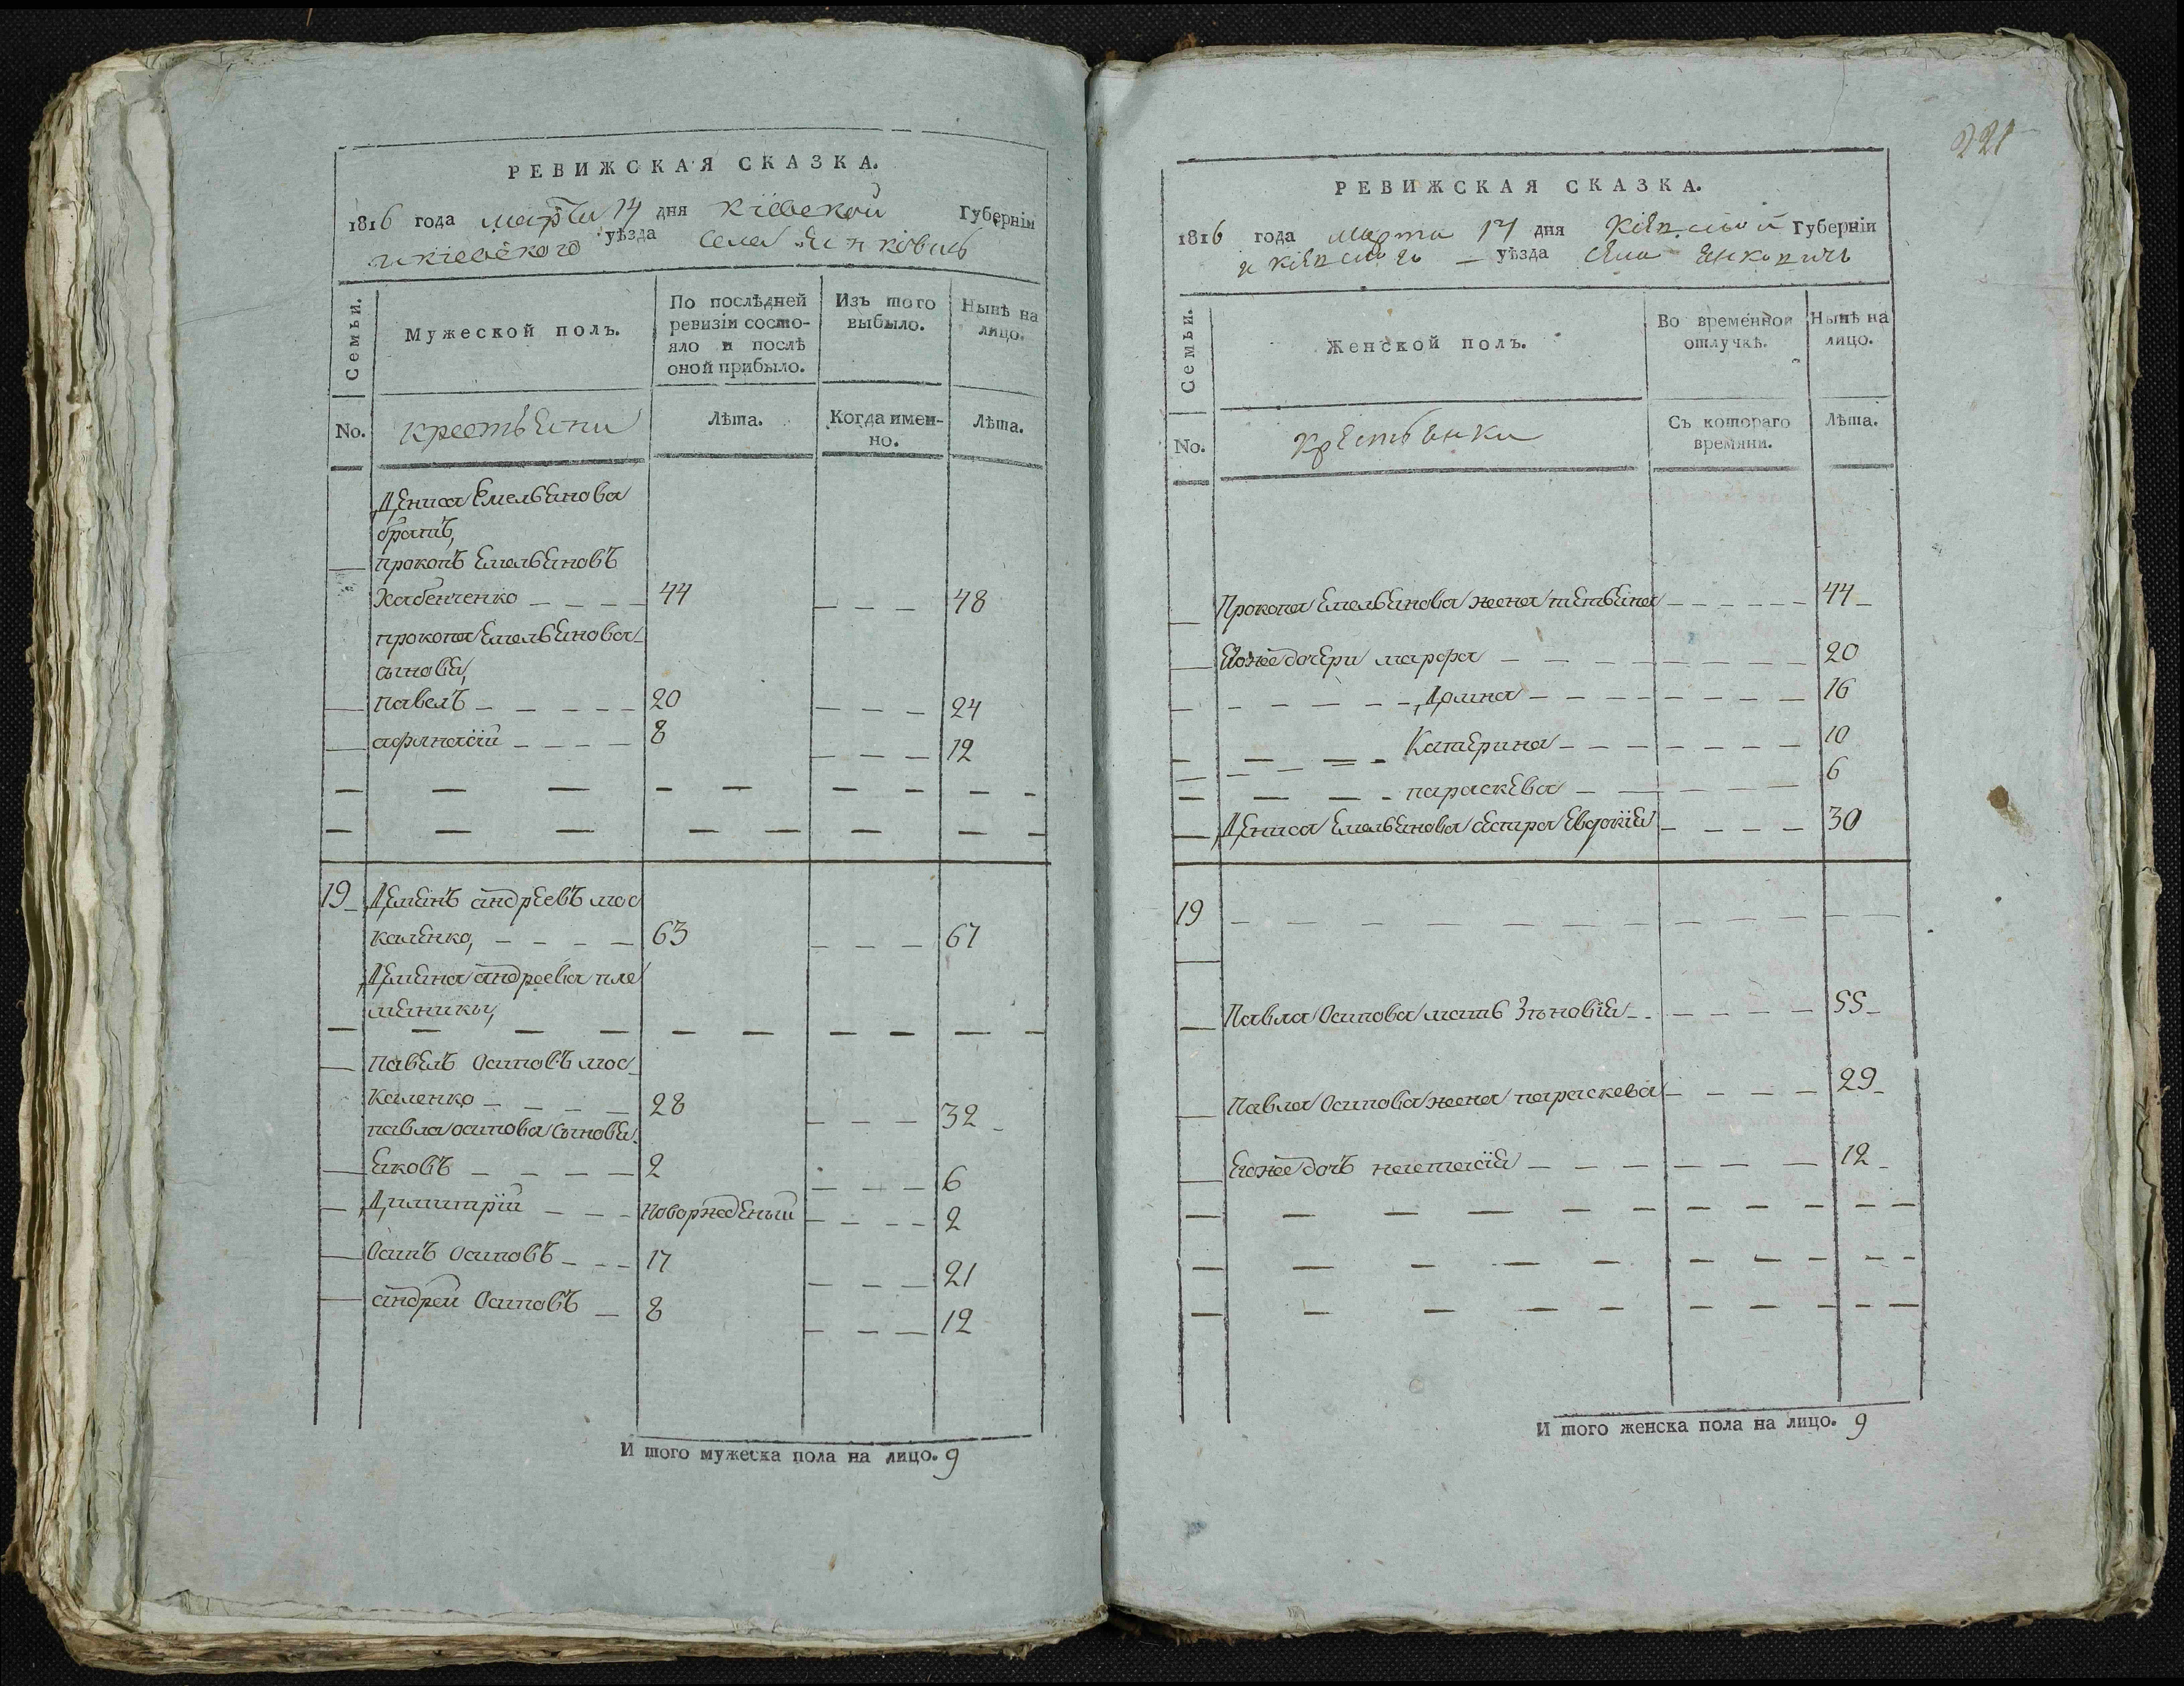 РЕВИЖСКАЯ СКАЗКА.
1816 года марта 14 дня Кіевской Губерніи
и кіевского уѣзда села Янковичь
Семьи.
Мужеской полъ.
По послѣдней ревизіи состо-
яло и послѣ
оной прибыло.
Изъ того
выбыло.
Нынѣ на
лицо.
No.
крестьяни
Лѣта.
Когда имен-
но.
Лѣта.
Дениса Емельянова
братъ,
прокопъ Емельяновъ
Хабенченко 44 48
прокопа Емельянова
сыновя,
павелъ 20 24
афанасій 8 12
19 Демянъ андреевъ мос
каленко, 63 67
Демяна андреева пле
мяники,
павелъ Осиповъ мос
каленко 28 32
павла осипова сыновя
яковъ 2 6
Димитрій новоржденый 2
Осипъ Осиповъ 17 21
андрей Осиповъ 8 12
И того мужеска пола на лицо. 9
221
РЕВИЖСКАЯ СКАЗКА.
1816 года марта 14 дня Кіевской Губерніи
и кіевского уѣзда села Янковичь
Семьи.
Женской полъ.
Во временной
отлучкѣ.
Нынѣ на
лицо.
No.
крестьянки
Съ котораго
времяни.
Лѣта.
Прокопа Емельянова жена татьяна 44
Егоже дочери марфа 20
Домна 16
Катерина 10
параскева 6
Дениса Емельянова сестра Евдокія 30
19
Павла Осипова мать Зѣновія 55
Павла Осипова жена параскева 29
Егоже дочь настасія 12
И того женска пола на лицо. 9